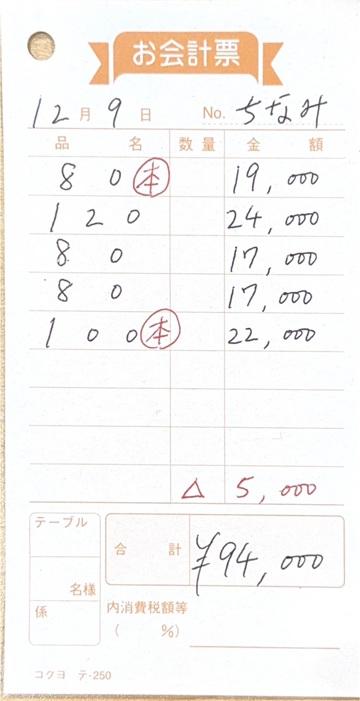 お会計票
12月9日 No. ちなみ
品名 数量 金額
80 本 19,000
120 24,000
80 17,000
80 17,000
100 本 22,000
△ 5,000
テーブル
名様
係
合計 ¥94,000
内消費税額等
( %)
コクヨ テ-250